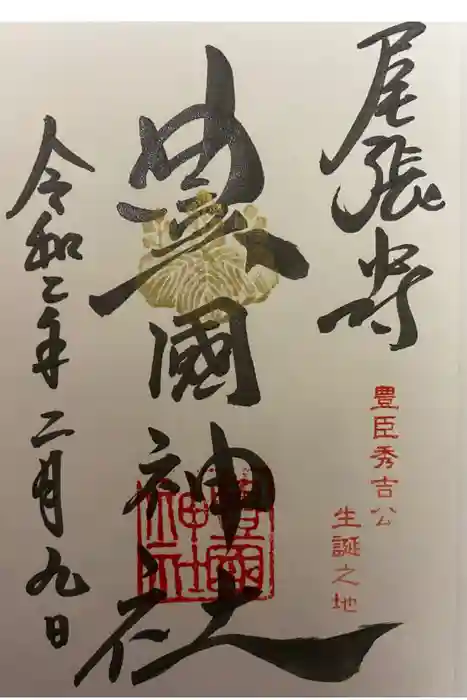 尾張中村
豊臣秀吉公
生誕之地
豊國神社
豊國神社
令和二年二月九日